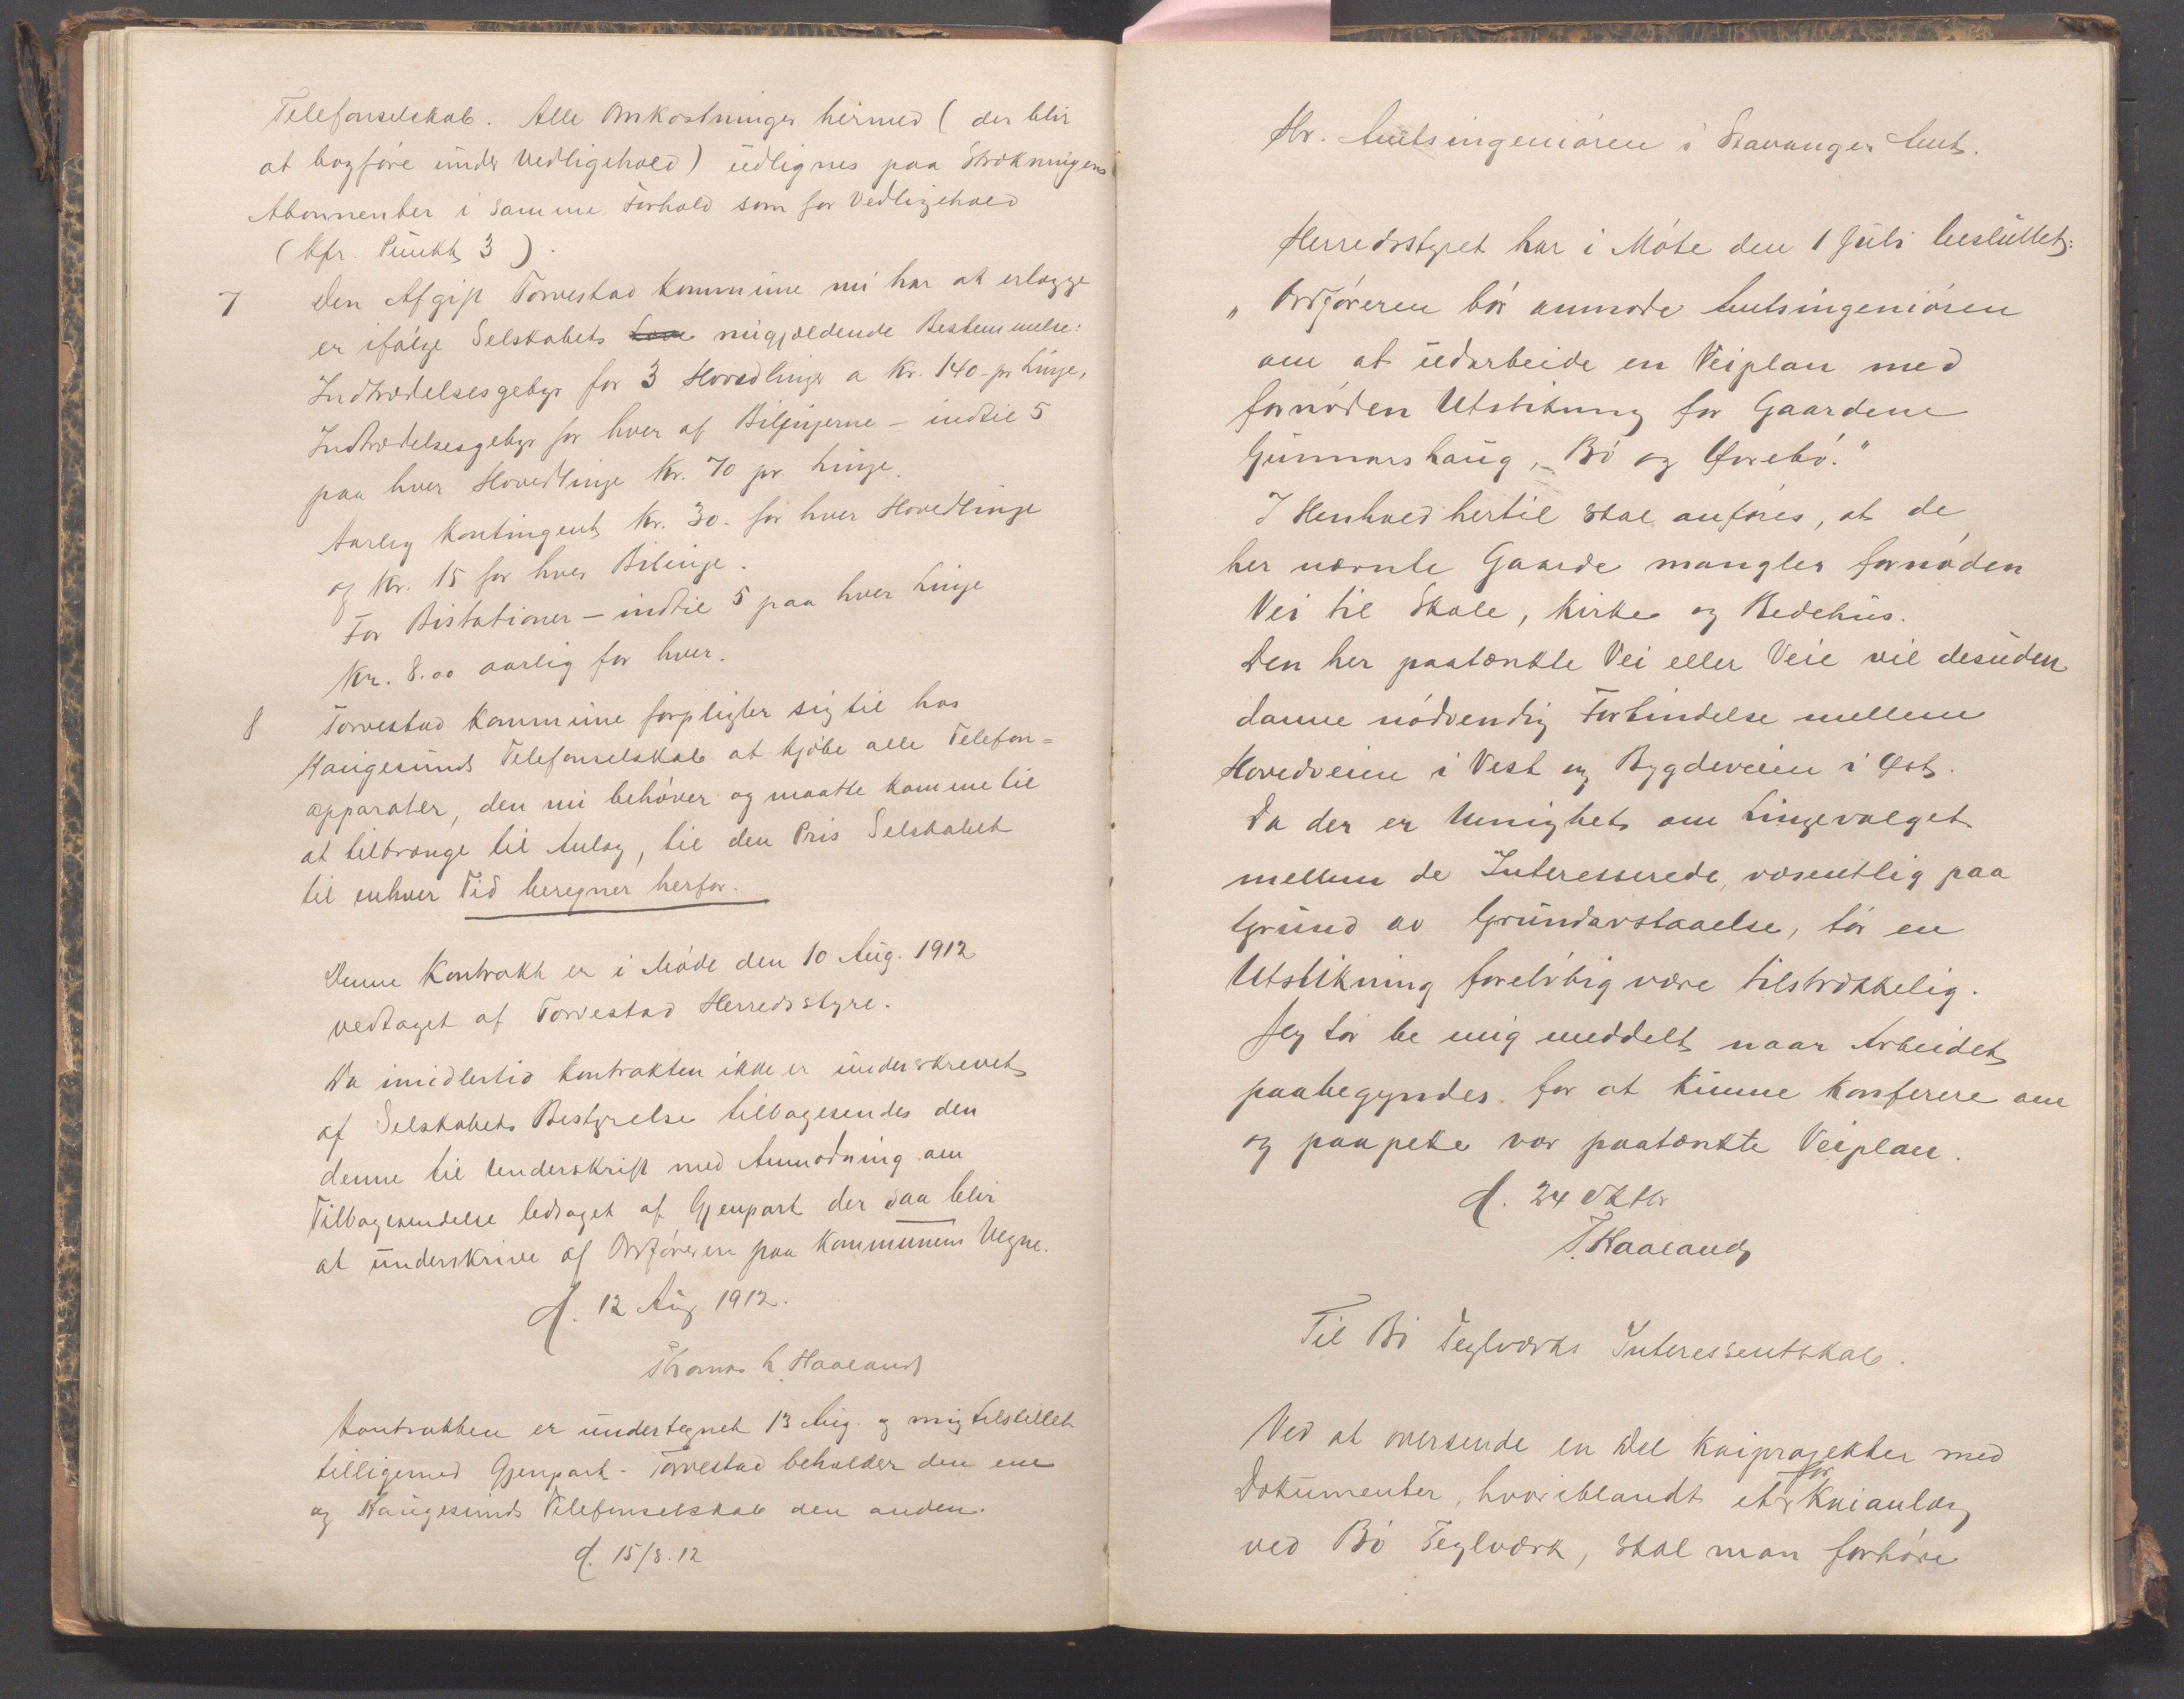 Telefonselskab. Alle Omkostninger hermed (der blir
at bogføre under Vedligehold) udlignes paa Strækningens
Abonnenter i samme Forhold som for Vedligehold
(Kfr. Punkt 3).
7 Den Afgift Torvestad Kommune nu har at erlægge
er ifølge Selskabets Love nugjældende Bestemmelse:
Indtrædelsesgebyr for 3 Hovedlinjer a Kr. 140 - pr Linje,
Indtrædelsesgebyr for hver af Bilinjerne - indtil 5
paa hver Hovedlinje Kr. 70 pr. Linje.
Aarlig Kontingent Kr. 30.- for hver Hovedlinje
og Kr. 15 for hver Bilinje.
For Bistationer - indtil 5 paa hver Linje
Kr. 8.00 aarlig for hver.
8 Torvestad Kommune forpligter sig til hos
Haugesunds Telefonselskab at kjøbe alle Telefon=
apparater, den nu behøver og maatte komme til
at tiltrænge til Anlæg, til den Pris Selskabet
til enhver Tid beregner herfor.
Denne Kontrakt er i Møde den 10 Aug. 1912
vedtaget af Torvestad Herredsstyre.
Da imidlertid Kontrakten ikke er underskrevet
af Selskabets Bestyrelse tilbagesendes den
denne til Underskrift med Anmodning om
Tilbagesendelse ledsaget af Gjenpart der saa blir
at underskrive af Ordføreren paa Kommunens Vegne.
d. 12 Aug 1912.
Thomas L. Haaland
Kontrakten er undertegnet 13 Aug. og mig tilstillet
tilligemed Gjenpart - Torvestad beholder den ene
og Haugesunds Telefonselskab den anden.
d. 15/8.12
Hr. Amtsingeniøren i Stavanger Amt.
Herredsstyret har i Møte den 1 Juli besluttet:
„Ordføreren bør anmode Amtsingeniøren
om at udarbeide en Veiplan med
fornøden Utstikning for Gaardene
Gunnarshaug, Bø og Ørebø."
I Henhold hertil skal anføres, at de
her nævnte Gaarde mangler fornøden
Vei til Skole, Kirke og Bedehus.
Den her paatænkte Vei eller Veie vil desuden
danne nødvendig Forbindelse mellem
Hovedveien i Vest og Bygdeveien i Øst.
Da der er Uenighet om Linjevalget
mellem de Interesserede, væsentlig paa
Grund av Grundavstaaelse, tør en
Utstikning foreløbig være tilstrækkelig.
Jeg tør be mig meddelt naar Arbeidet
paabegyndes. for at kunne konferere om
og paapeke vor paatænkte Veiplan.
d. 24 Oktbr
T. Haaland
Til Bø Teglværks Interessentskab.
Ved at oversende en Del Kaiprojekter med
Dokumenter, hvoriblandt et for Kaianlæg
ved Bø Teglværk, skal man forhøre